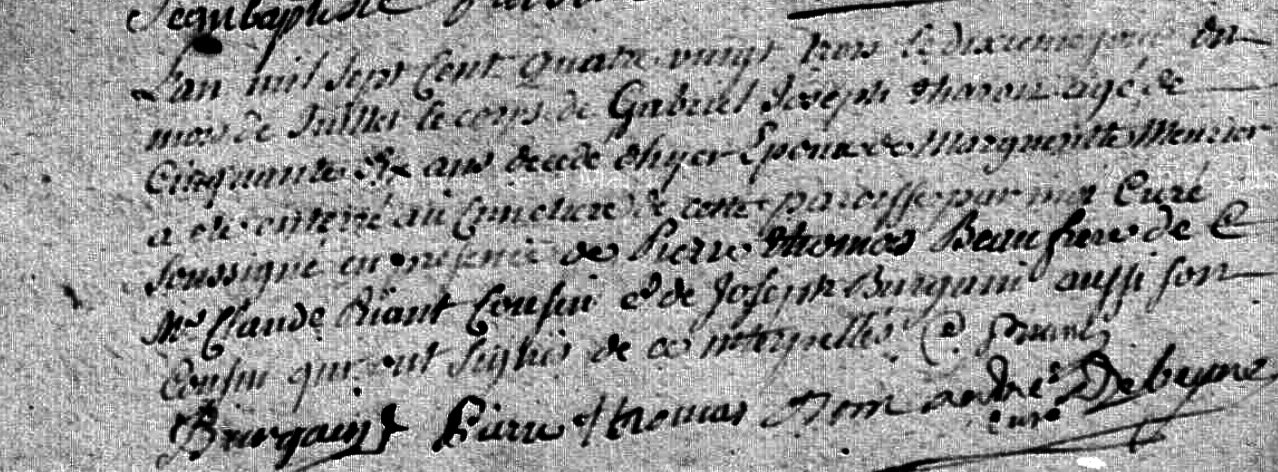 Jeanbaptiste
L'an mil sept Cent quatre vingt trois le dixieme jour du
mois de Juillet le corps de Gabriel Joseph agé de
Cinquante six ans decedé d'hyer Epoux de Marguerite Meunier
a eté enterré au Cimetiere de cette paroisse par moi Curé
soussigné en presence de Pierre thomas Beaufrere de
Mre Claude Riant Cousin & de Joseph Burgain aussi son
Cousin qui ont signés de ce interpellés
Burgain Pierre thomas Dom andré Debeyne
curé